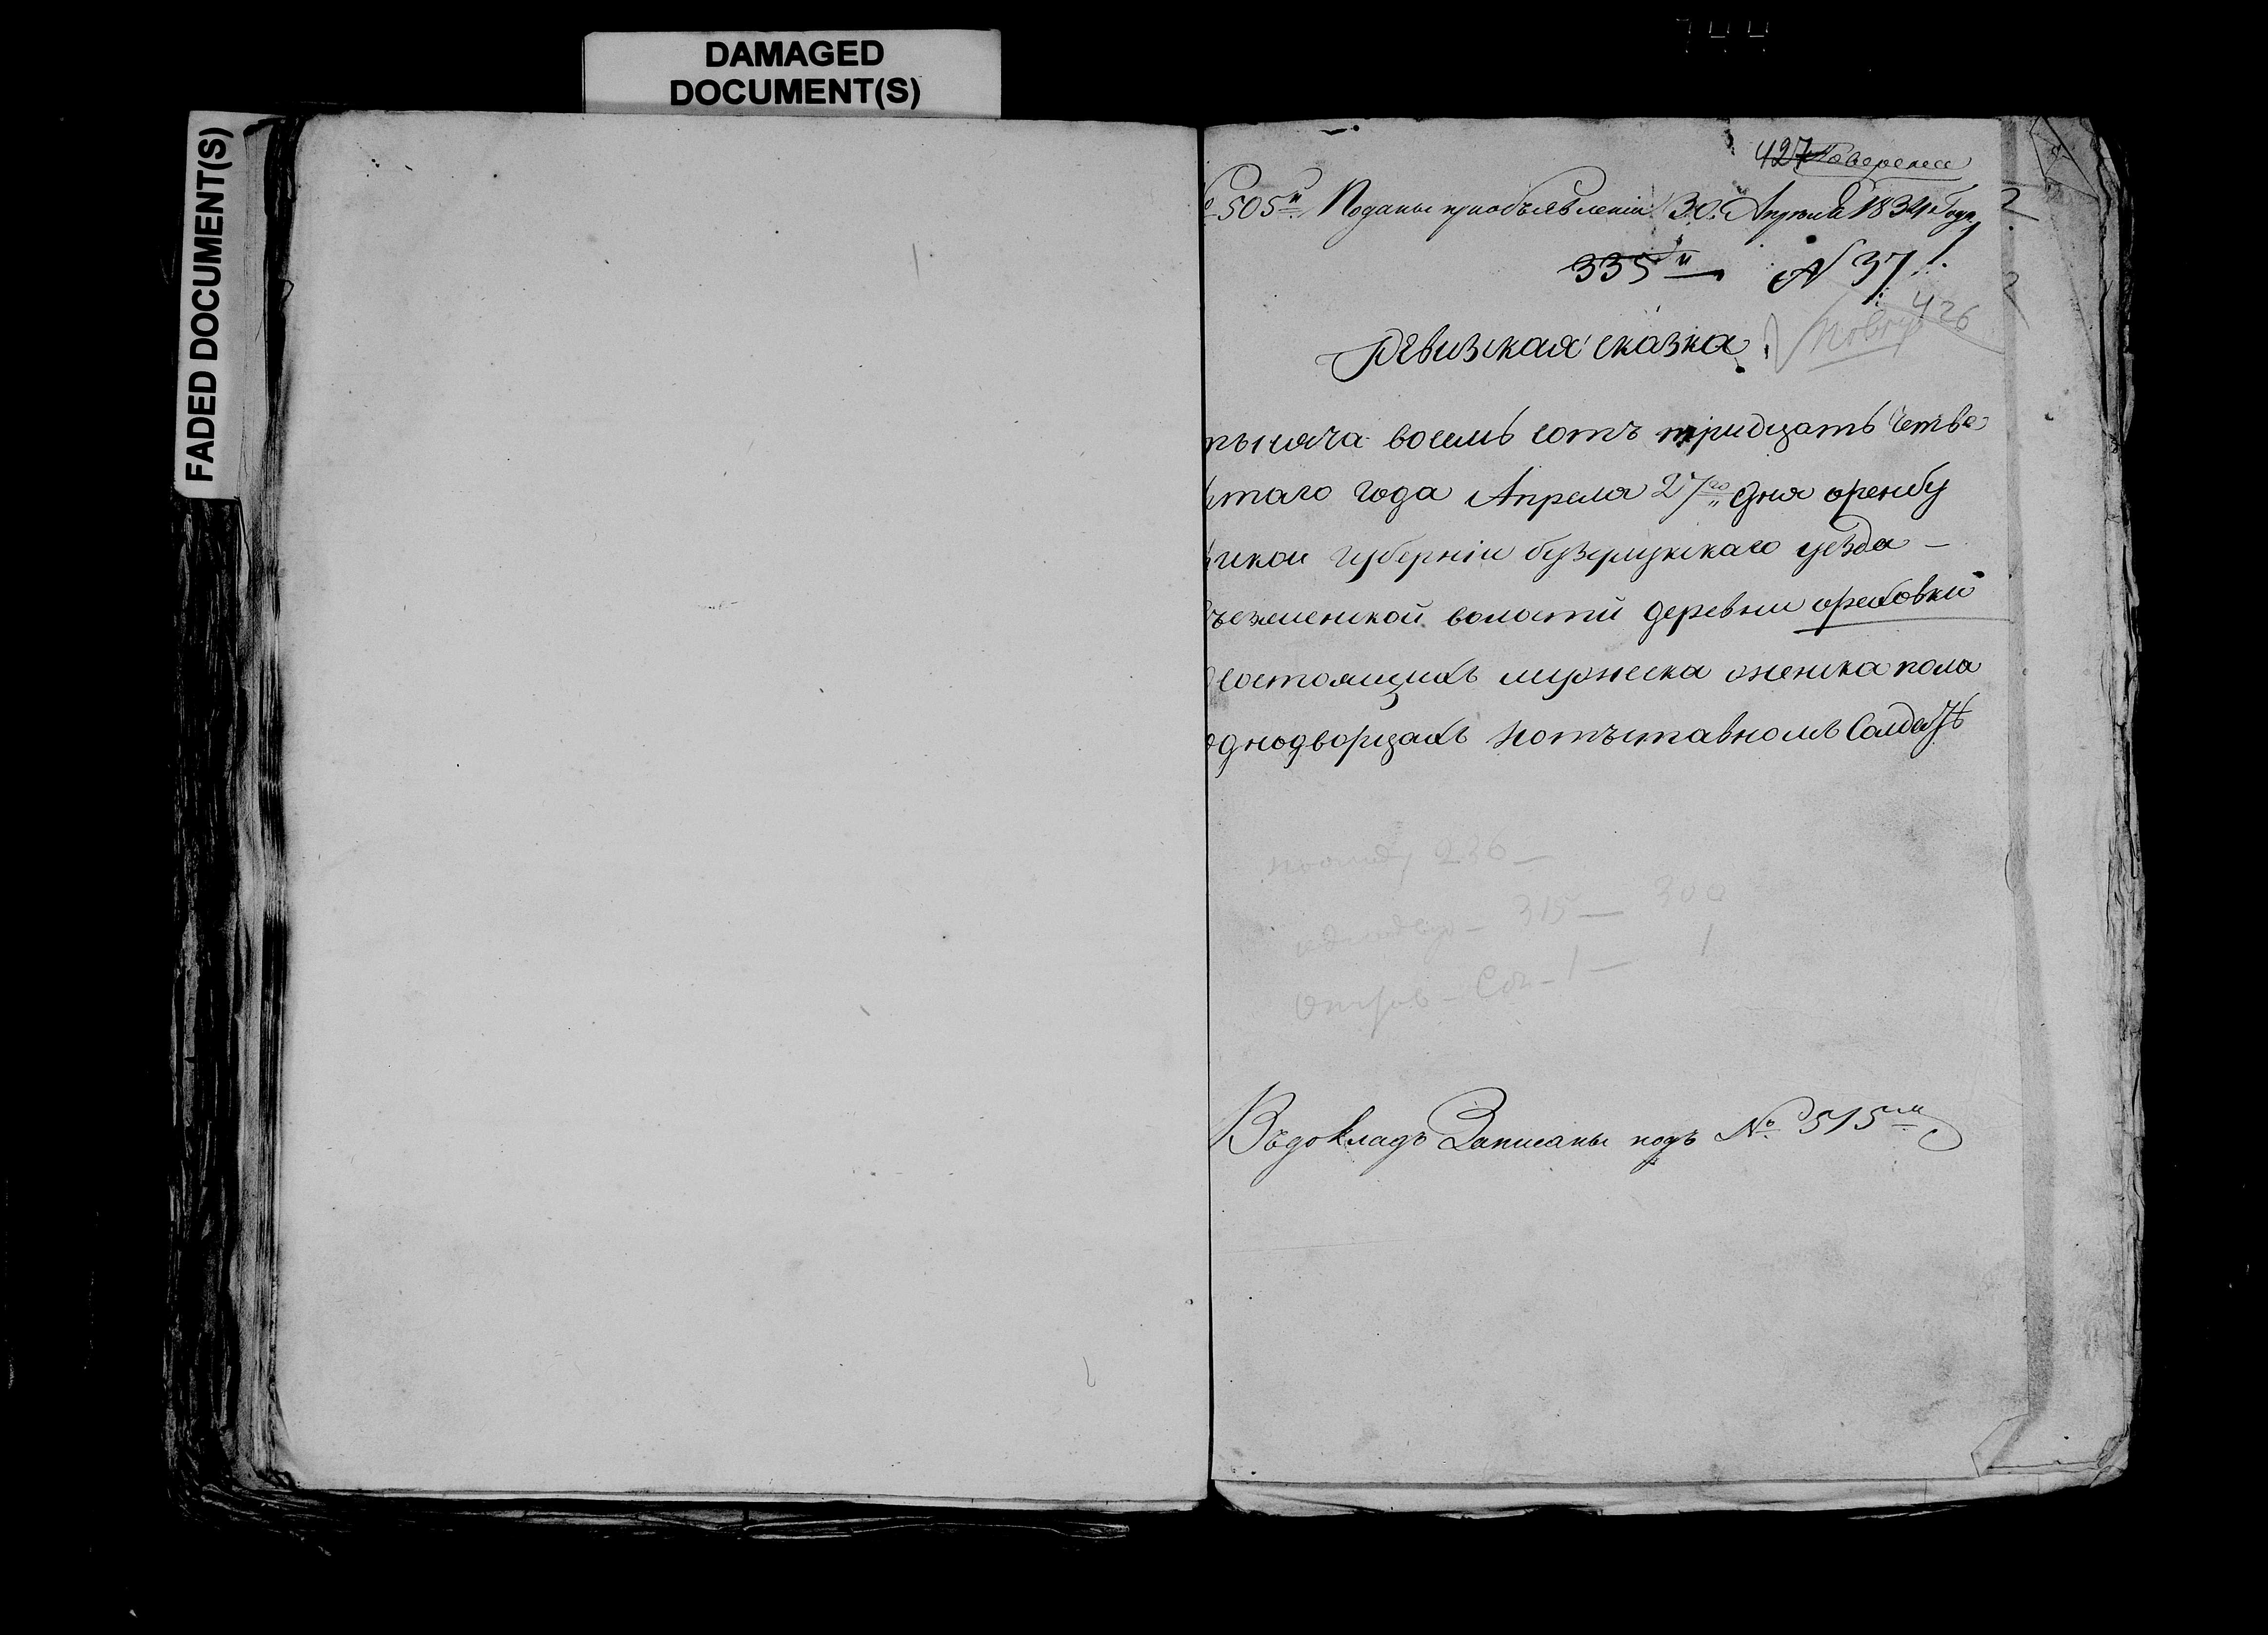 DAMAGED
DOCUMENT(S)
FADED DOCUMENT(S)
744
427 Поверена
№ 505й Поданы приобъявлении 30. Апреля 1834 Года
335й № 37
426
Ревизская сказка
тысяча восемь сотъ тридцать четве
ртаго года Апреля 27го дня оренбу
ской губернiи бузулукскаго уезда –
волости деревни ореховки
состоящихъ мужеска иженска пола
однодворцахъ иотъставномъ Салдатѣ
236 –
однодвор – 315 – 300
– 1 – 1
Въдокладъ Записаны подъ № 515м